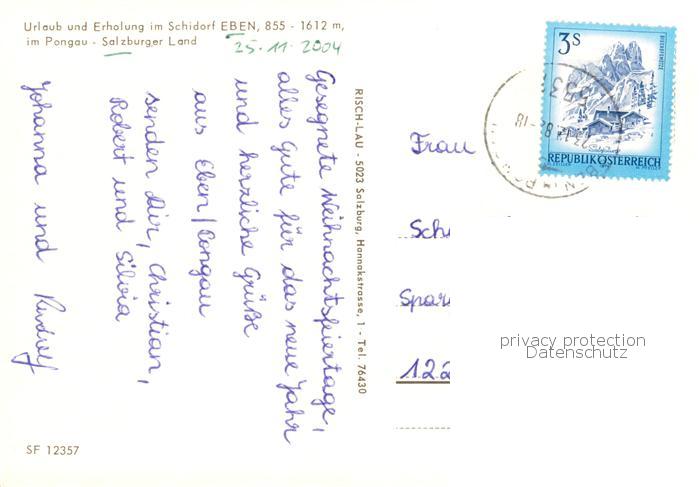 Urlaub und Erholung im Schidorf EBEN, 855 - 1612 m,
im Pongau - Salzburger Land
25.11.2004
Gesegnete Weihnachtsfeiertage,
alles Gute für das neue Jahr
und herzliche Grüße
aus Eben/Pongau
senden Dir, Christian,
Robert und Silvia
Johanna und Rudolf
SF 12357
RISCH-LAU - 5023 Salzburg, Hannakstrasse, 1 - Tel. 76430
3S
REPUBLIK ÖSTERREICH
Frau
Sch
Spar
122
privacy protection
Datenschutz